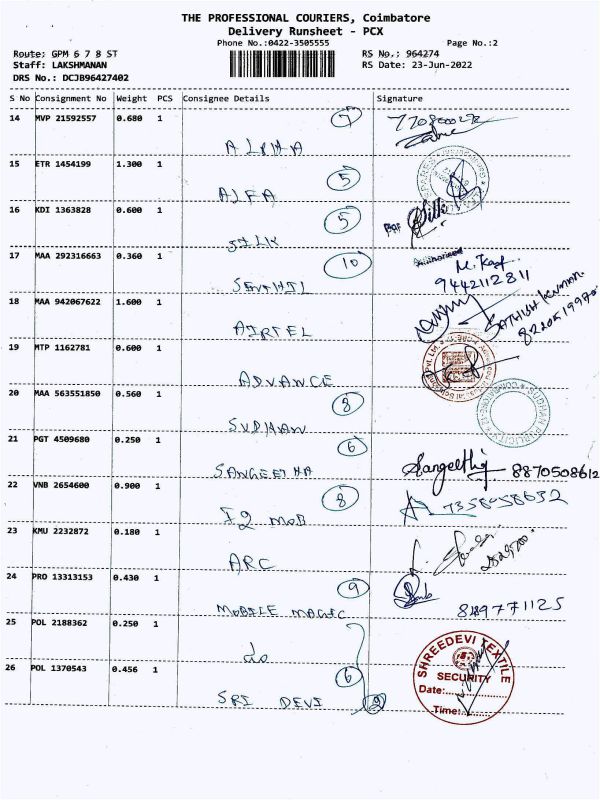 THE PROFESSIONAL COURIERS, Coimbatore
Delivery Runsheet - PCX
Phone No.:0422-3505555 Page No.:2
Route: GPM 6 7 8 ST RS No.: 964274
Staff: LAKSHMANAN RS Date: 23-Jun-2022
DRS No.: DCJB96427402
S No Consignment No Weight PCS Consignee Details Signature
14 MVP 21592557 0.680 1 7
ALPHA
15 ETR 1454199 1.300 1 5
ALFA
16 KDI 1363828 0.600 1 5
SILK
17 MAA 292316663 0.360 1 10
SENTHIL 9442112811
18 MAA 942067622 1.600 1
AIRTEL SATHISH KUMAR
19 MTP 1162781 0.600 1
ADVANCE
20 MAA 563551850 0.560 1 8
SUDHAN
21 PGT 4509680 0.250 1 6
SANGEETHA Sangeetha 8870508612
22 VNB 2654600 0.900 1 8
I2 MOB 7358958632
23 KMU 2232872 0.180 1
ARC
24 PRO 13313153 0.430 1 9
MOBILE MAGIC 8489771125
25 POL 2188362 0.250 1
do
26 POL 1370543 0.456 1 6
SRI DEVI 9
SHREEDEVI TEXTILE
SECURITY
Date:
Time: